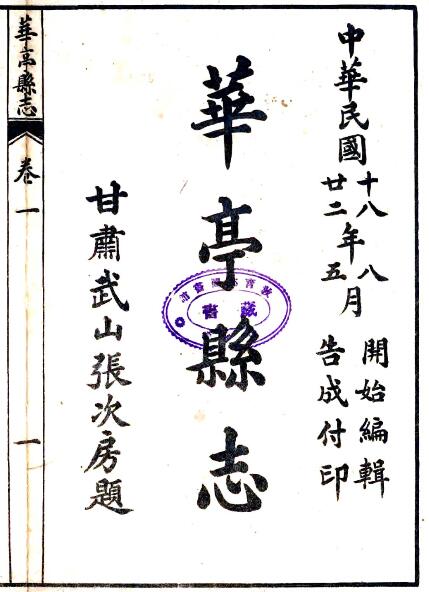 中華民國十八年八月開始編輯
廿二五告成付印
華亭縣志
藏書
甘肅武山張次房題
華亭縣志 卷一 一